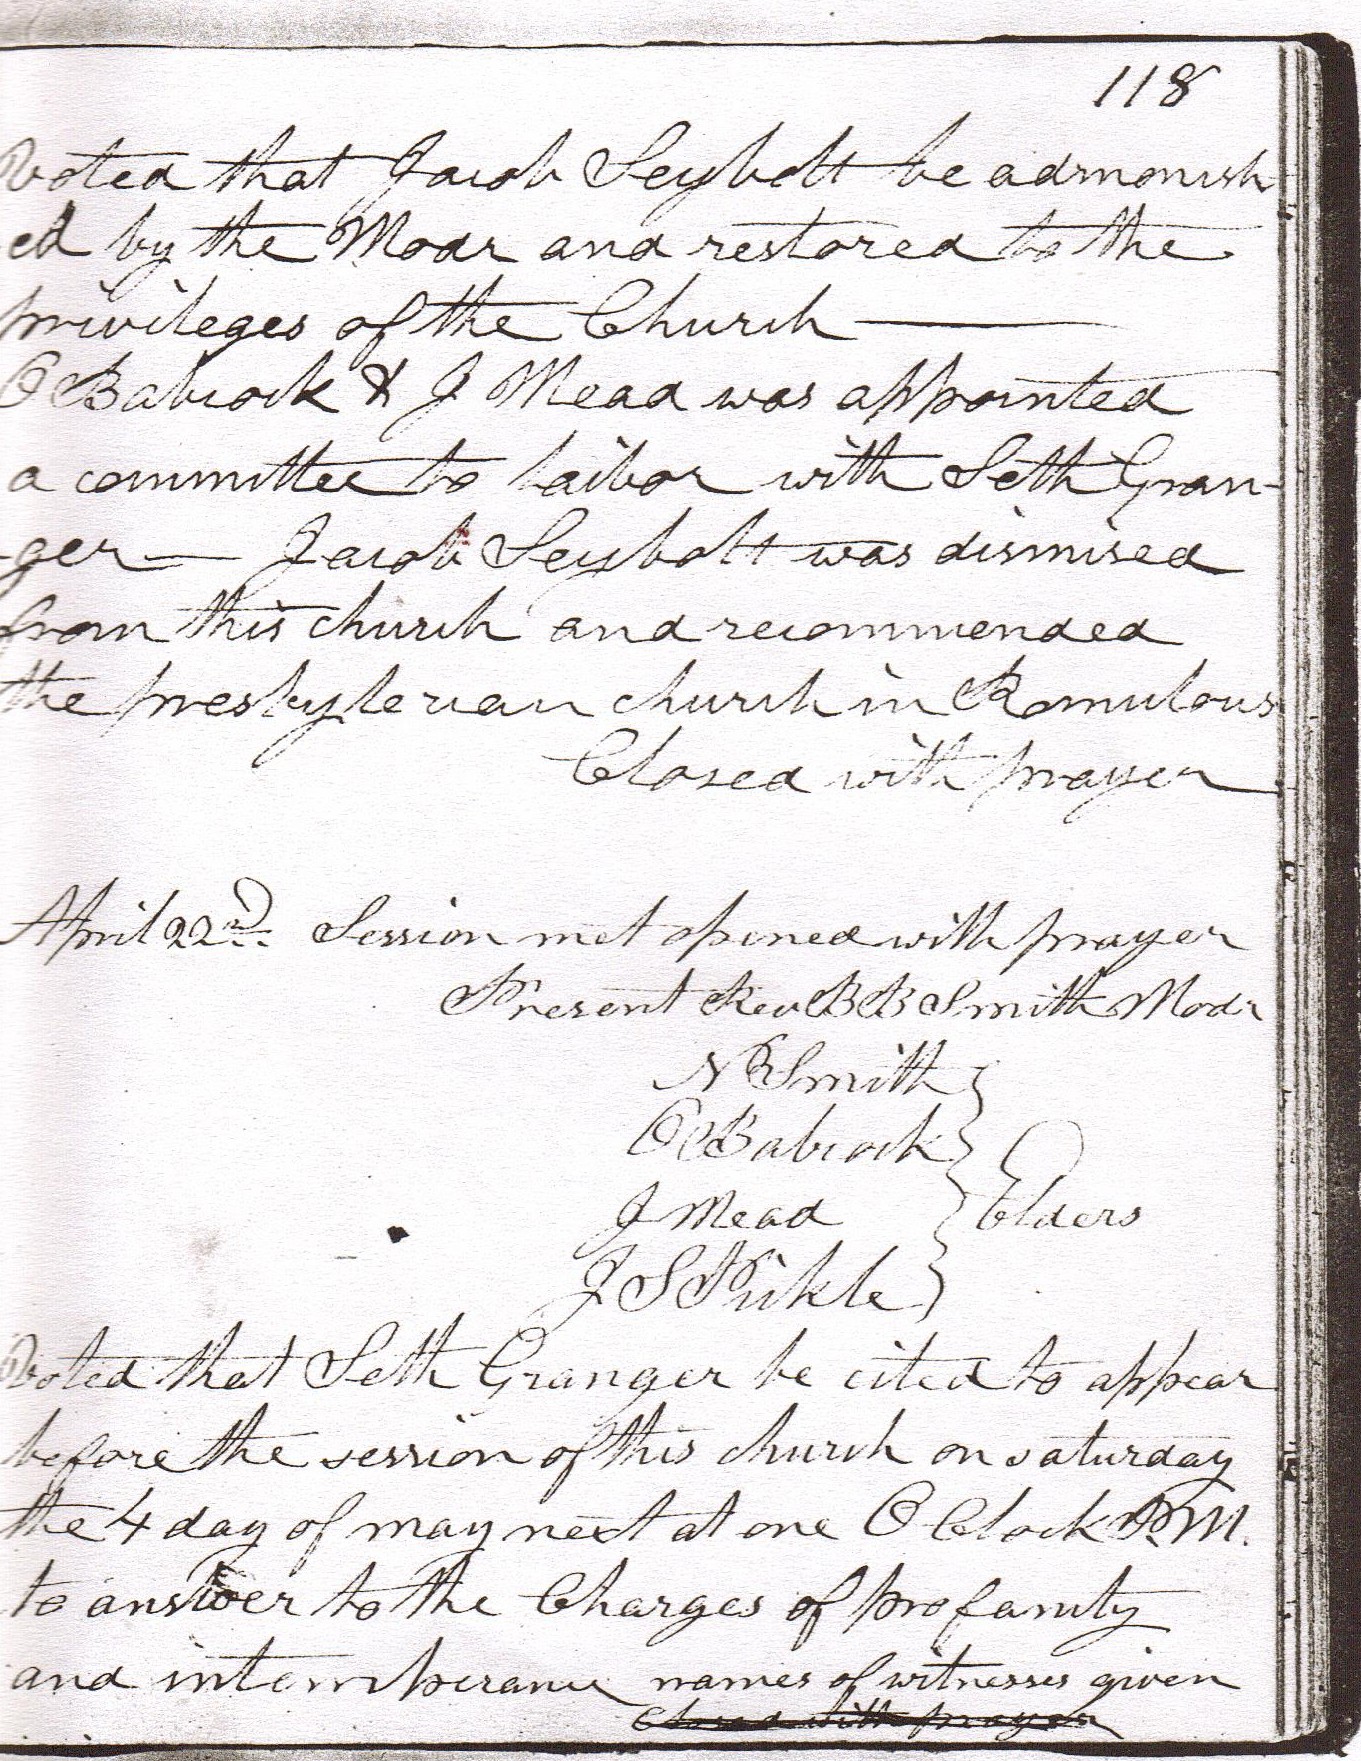 118
Voted that Jacob Seybolt be admonish
ed by the Modr and restored to the
privileges of the Church
O Babcock & J Mead was appointed
a committee to laibor with Seth Gran-
-ger — Jacob Seybolt was dismised
from this church and recommended
the presbyterian church in Romulous
Closed with prayer
April 22nd Session met opened with prayer
Present Rev B B Smith Modr
N R Smith
O Babcock
J Mead Elders
J S Pickle
Voted that Seth Granger be cited to appear
before the session of this church on saturday
the 4 day of may next at one O Clock P.M.
to answer to the Charges of profanity
and intemperance names of witnesses given
Closed with prayer